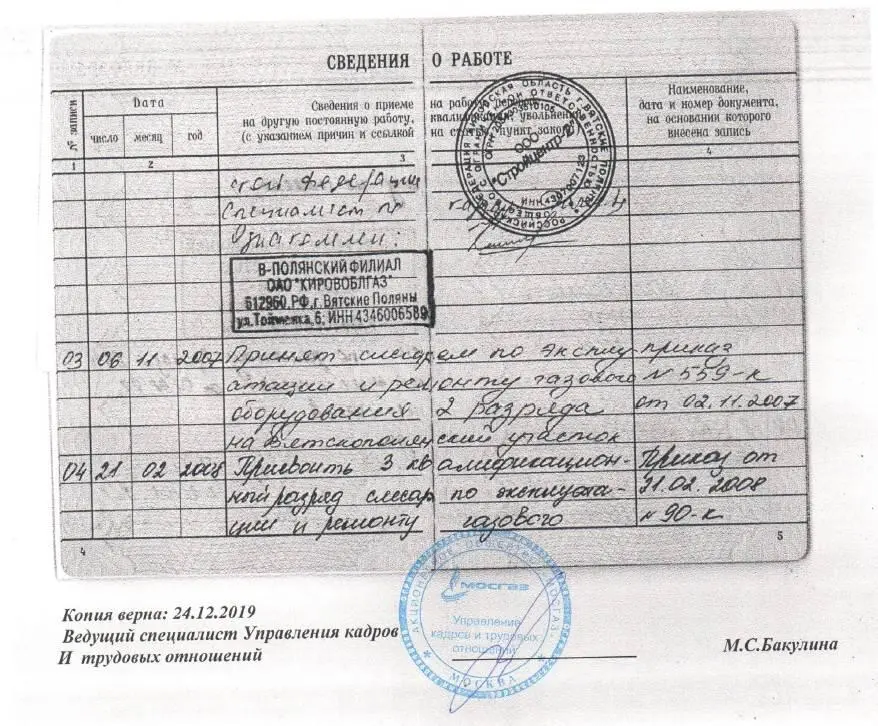 СВЕДЕНИЯ О РАБОТЕ
№ записи
Дата
число
месяц
год
Сведения о приеме на работу,
на другую постоянную работу, квалификации, увольнении
(с указанием причин и ссылкой на статью, пункт закона)
Наименование,
дата и номер документа,
на основании которого
внесена запись
1 2 3 4
ской Федерации
Специалист по кадрам
Ознакомлен:
РОССИЙСКАЯ ФЕДЕРАЦИЯ КИРОВСКАЯ ОБЛАСТЬ г. ВЯТСКИЕ ПОЛЯНЫ
ОБЩЕСТВО С ОГРАНИЧЕННОЙ ОТВЕТСТВЕННОСТЬЮ
ООО
"Стройцентр-
В-ПОЛЯНСКИЙ ФИЛИАЛ
ОАО "КИРОВОБЛГАЗ"
612960, РФ, г. Вятские Поляны
ул. Тойменка, 6, ИНН 4346006589
03 06 11 2007 Принят слесарем по эксплу- приказ
атации и ремонту газового N 559-к
оборудования 2 разряда от 02.11.2007
на Вятскополянский участок
04 21 02 2008 Присвоить 3 квалификацион- Приказ от
ный разряд слесар по эксплуата- 21.02.2008
ции и ремонту газового N 90-к
4 5
АКЦИОНЕРНОЕ ОБЩЕСТВО "МОСГАЗ"
МОСГАЗ
Управление
кадров и трудовых
отношений
МОСКВА
Копия верна: 24.12.2019
Ведущий специалист Управления кадров
И трудовых отношений
М.С.Бакулина